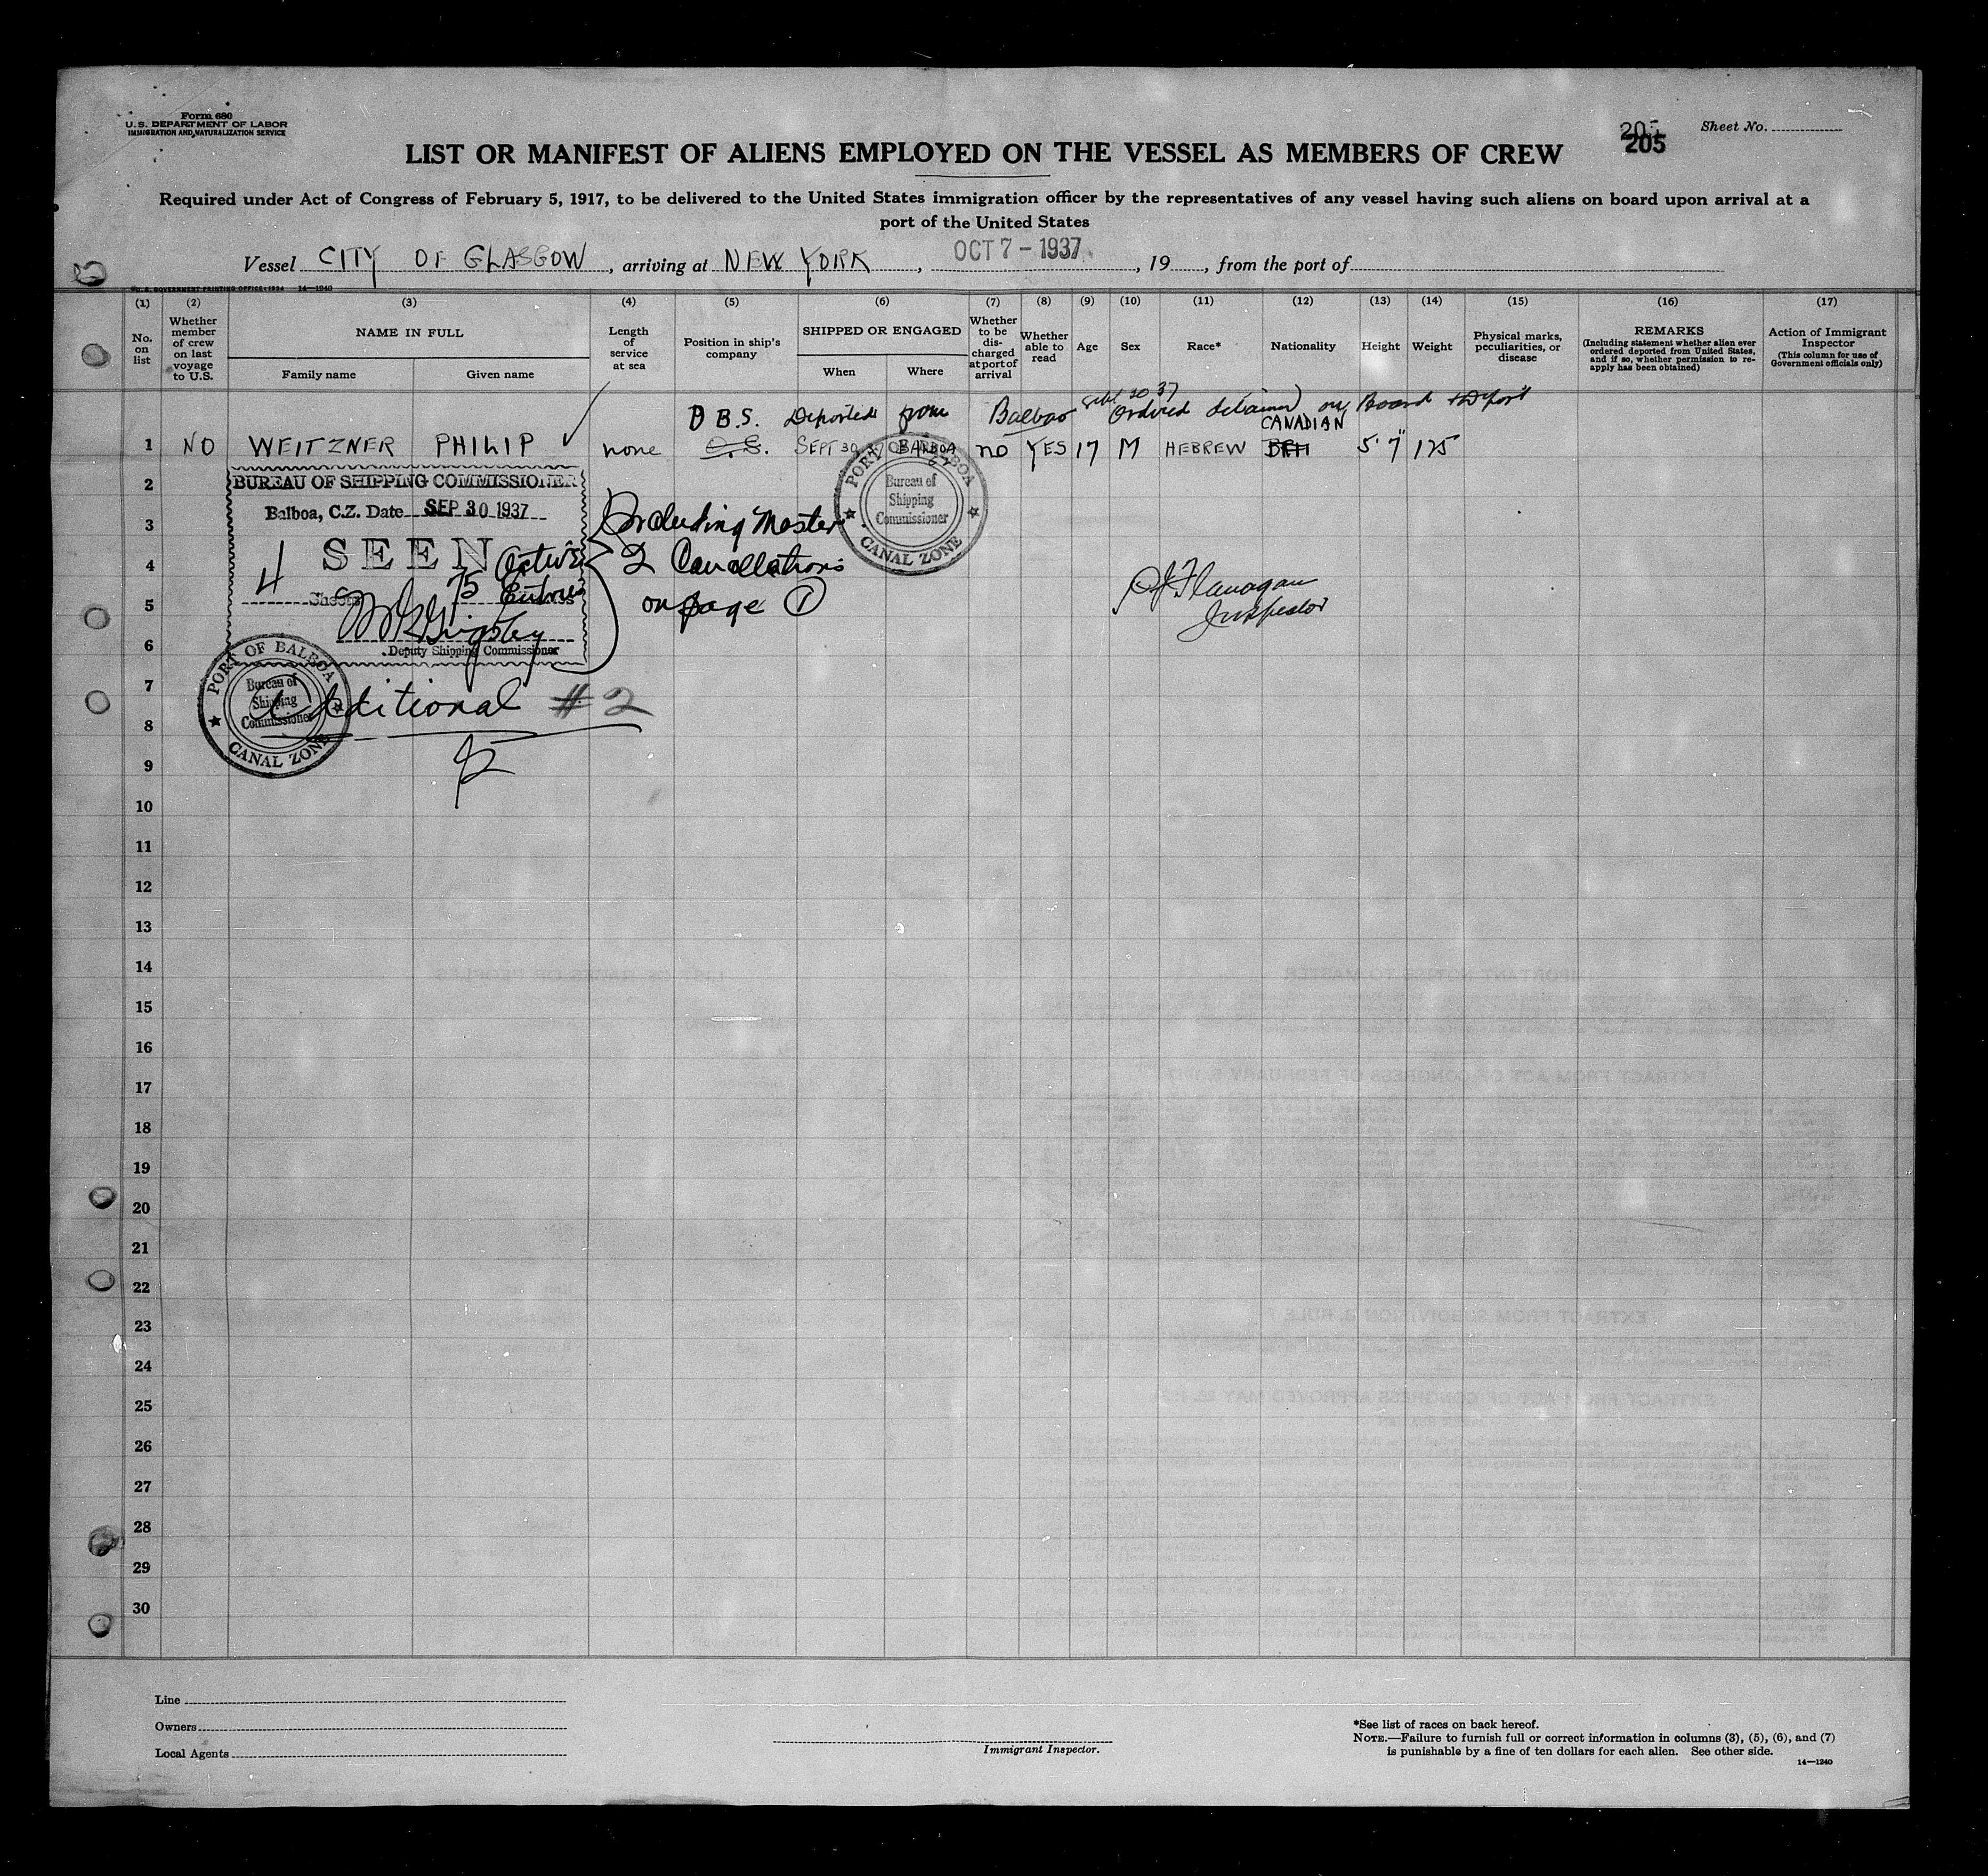 Form 680
U.S. DEPARTMENT OF LABOR
IMMIGRATION AND NATURALIZATION SERVICE
205
205
Sheet No.
LIST OR MANIFEST OF ALIENS EMPLOYED ON THE VESSEL AS MEMBERS OF CREW
Required under Act of Congress of February 5, 1917, to be delivered to the United States immigration officer by the representatives of any vessel having such aliens on board upon arrival at a
port of the United States
Vessel CITY OF GLASGOW, arriving at NEW YORK, OCT 7-1937, 19, from the port of
U.S. GOVERNMENT PRINTING OFFICE: 1934 14—1240
(1) (2) (3) (4) (5) (6) (7) (8) (9) (10) (11) (12) (13) (14) (15) (16) (17)
No. on list
Whether member of crew on last voyage to U.S.
NAME IN FULL
Family name
Given name
Length of service at sea
Position in ship's company
SHIPPED OR ENGAGED
When
Where
Whether to be discharged at port of arrival
Whether able to read
Age
Sex
Race*
Nationality
Height
Weight
Physical marks, peculiarities, or disease
REMARKS
(Including statement whether alien ever ordered deported from United States, and if so, whether permission to reapply has been obtained)
Action of Immigrant Inspector
(This column for use of Government officials only)
D B.S. Deported from Balboa Sept 30 37 Ordered detained on Board + Deport
CANADIAN
1 NO WEITZNER PHILIP none O.S. SEPT 30 BALBOA no YES 17 M HEBREW 5'7" 125
BUREAU OF SHIPPING COMMISSIONER
Balboa, C.Z. Date SEP 30 1937
SEEN
4 Sheets 75 Active Entries
Deputy Shipping Commissioner
Including Master
2 Cancellations
on page 1
PORT OF BALBOA
Bureau of
Shipping
Commissioner
CANAL ZONE
Flanagan
Inspector
PORT OF BALBOA
Bureau of
Shipping
Commissioner
CANAL ZONE
Additional #2
2
3
4
5
6
7
8
9
10
11
12
13
14
15
16
17
18
19
20
21
22
23
24
25
26
27
28
29
30
Line
Owners
Local Agents
Immigrant Inspector.
*See list of races on back hereof.
NOTE.—Failure to furnish full or correct information in columns (3), (5), (6), and (7)
is punishable by a fine of ten dollars for each alien. See other side.
14—1240